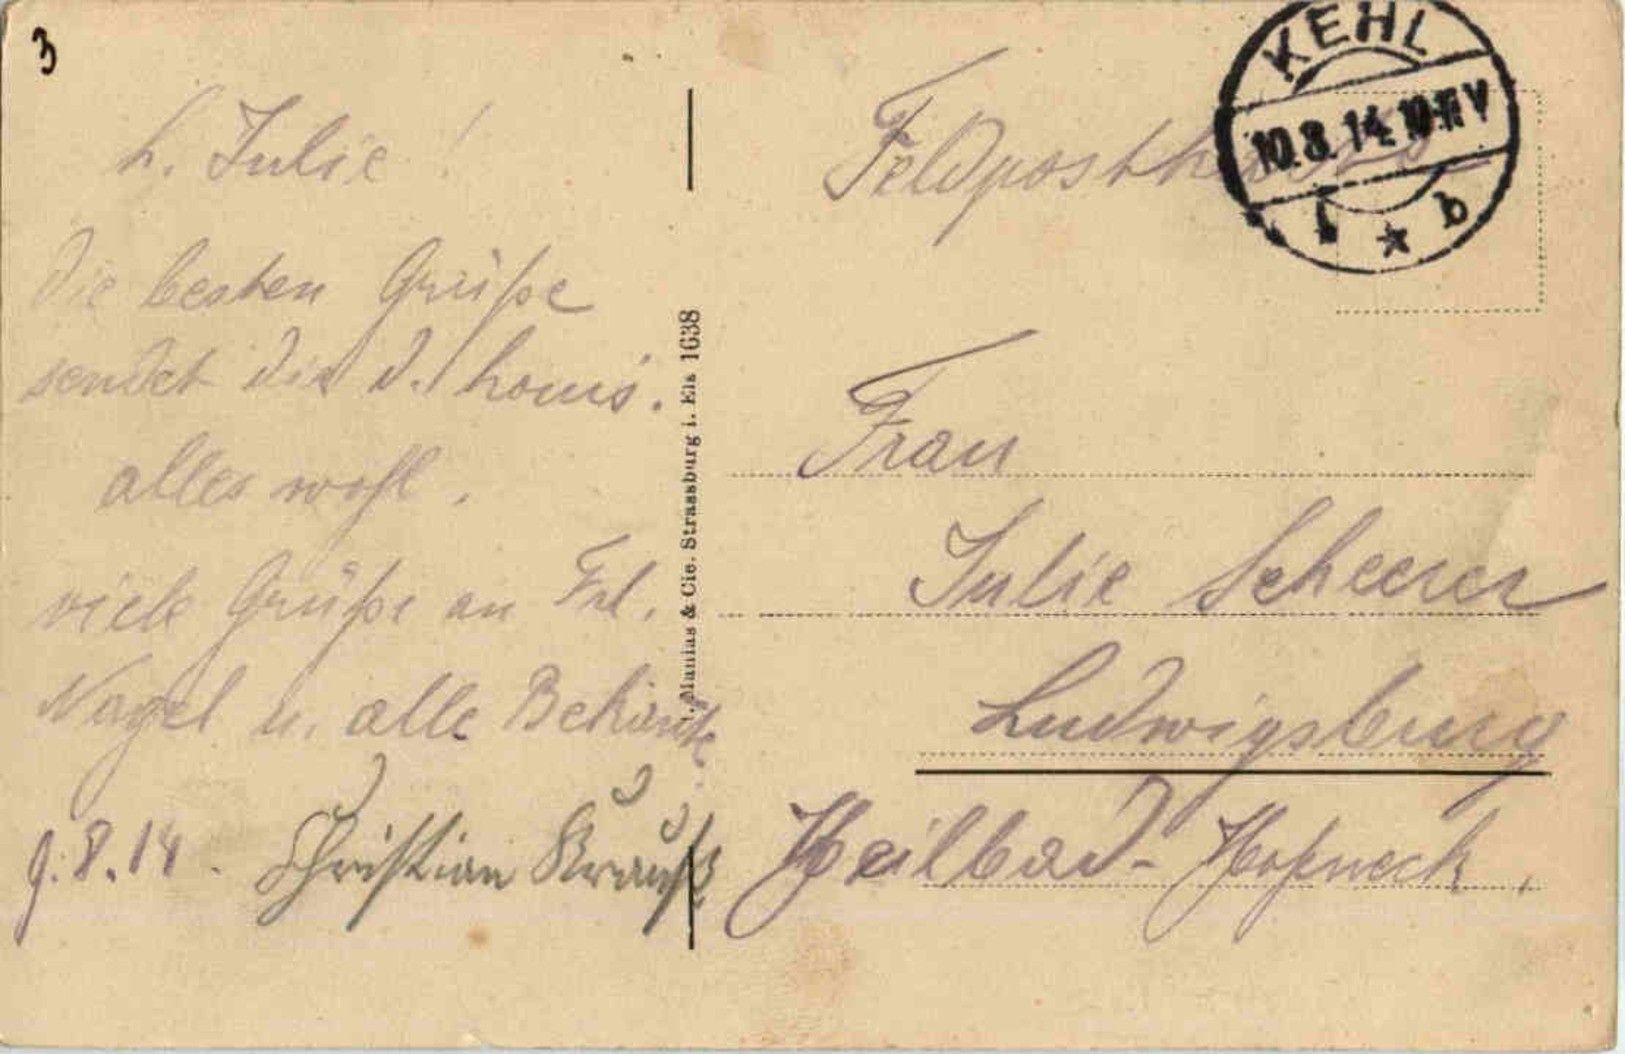 3
L. Julie!
Die besten Grüße
sendet dir d. Louis.
alles wohl.
viele Grüße an Frl.
Nagel u. alle Bekannte
9.8.14. Christian Krauß
Manias & Cie. Strassburg i. Els 1638
KEHL
10.8.14. 10-11 V
* b
Feldpostkarte
Frau
Julie Scheerer
Ludwigsburg
Heilbad-Hoheneck.